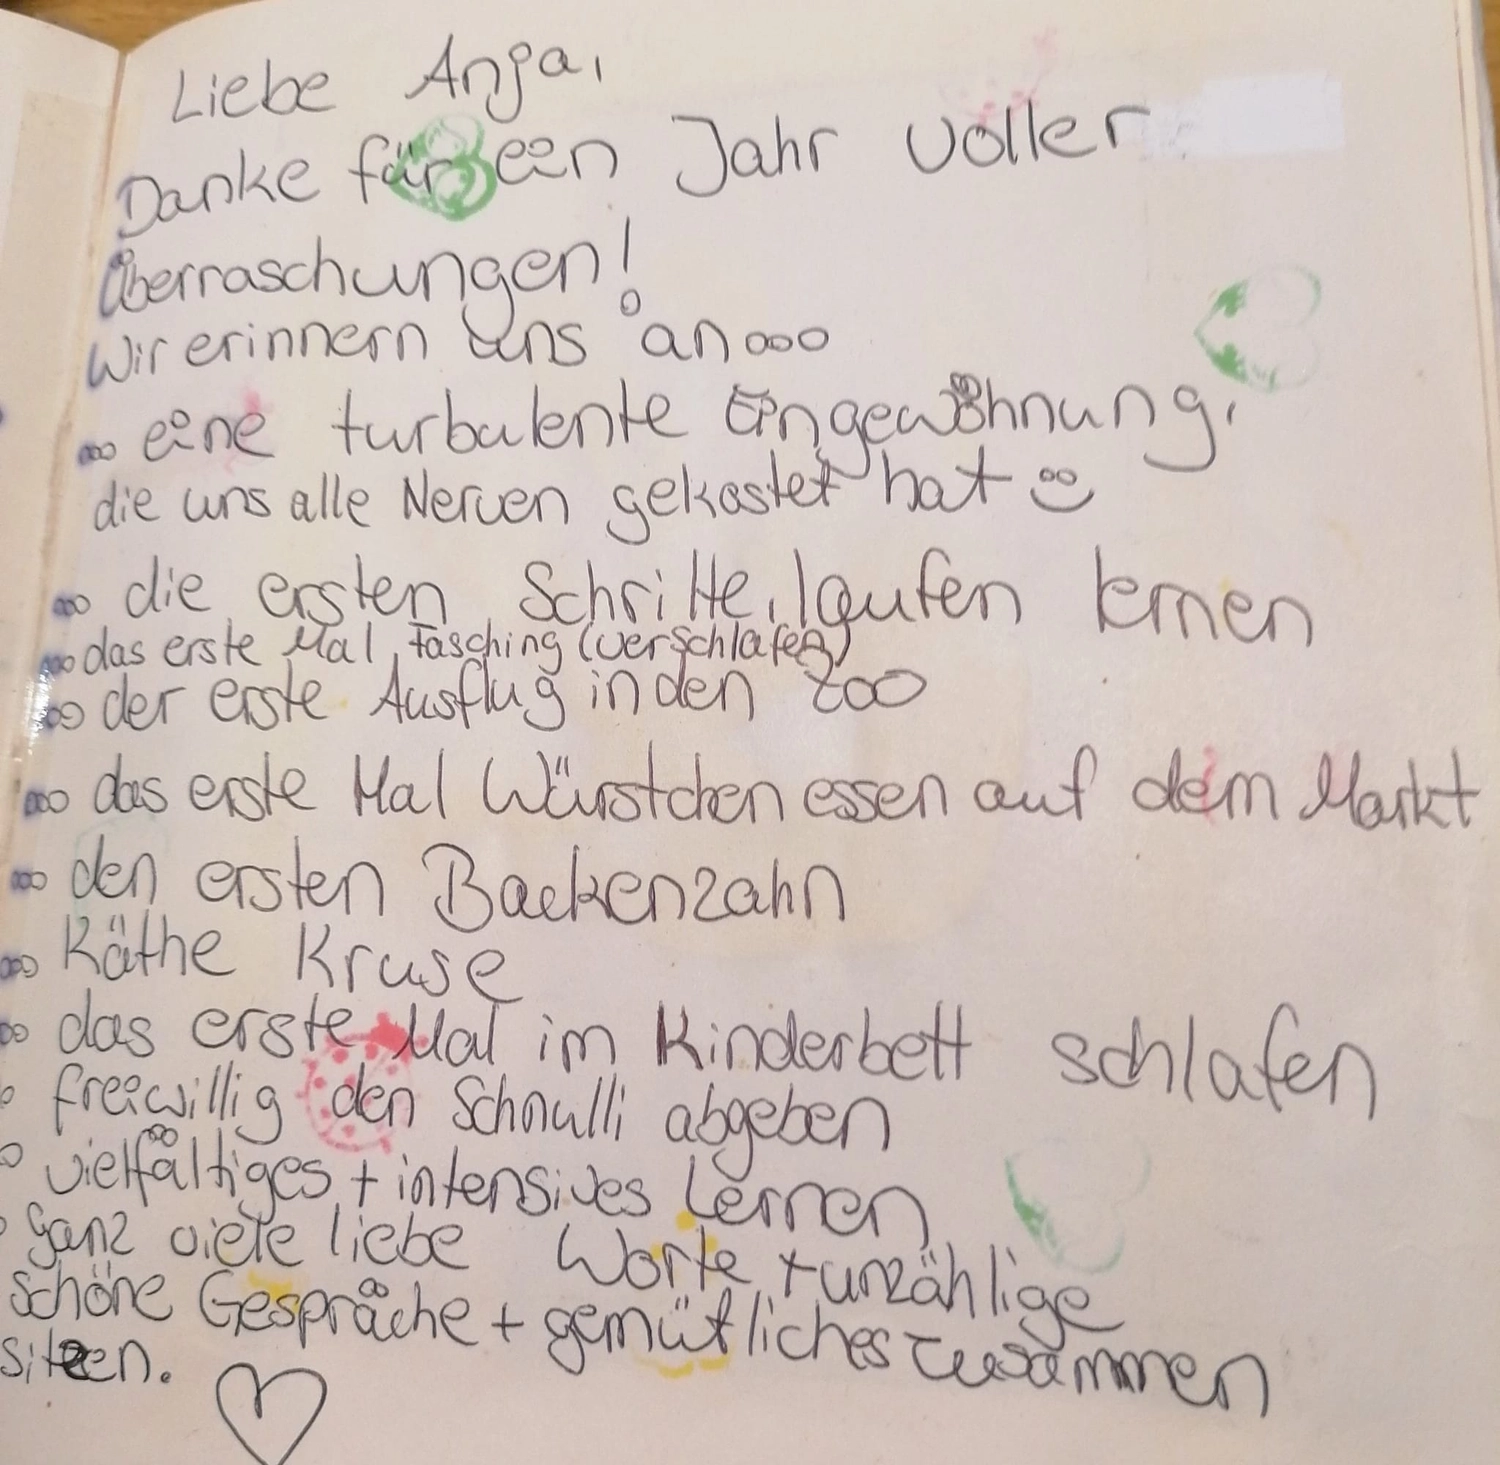 Liebe Anja,
Danke für ein Jahr voller
Überraschungen!
Wir erinnern uns an ooo
ooo eine turbulente Eingewöhnung,
die uns alle Nerven gekostet hat
ooo die ersten Schritte, laufen lernen
ooo das erste Mal Fasching (verschlafen)
ooo der erste Ausflug in den Zoo
ooo das erste Mal Würstchen essen auf dem Markt
ooo den ersten Backenzahn
ooo Käthe Kruse
oo das erste Mal im Kinderbett schlafen
o freiwillig den Schnulli abgeben
o vielfältiges + intensives Lernen
o ganz viele liebe Worte + unzählige
schöne Gespräche + gemütliches Zusammen
sitzen.